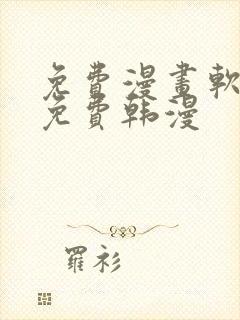 免費漫畫軟
免費韩漫
羅衫